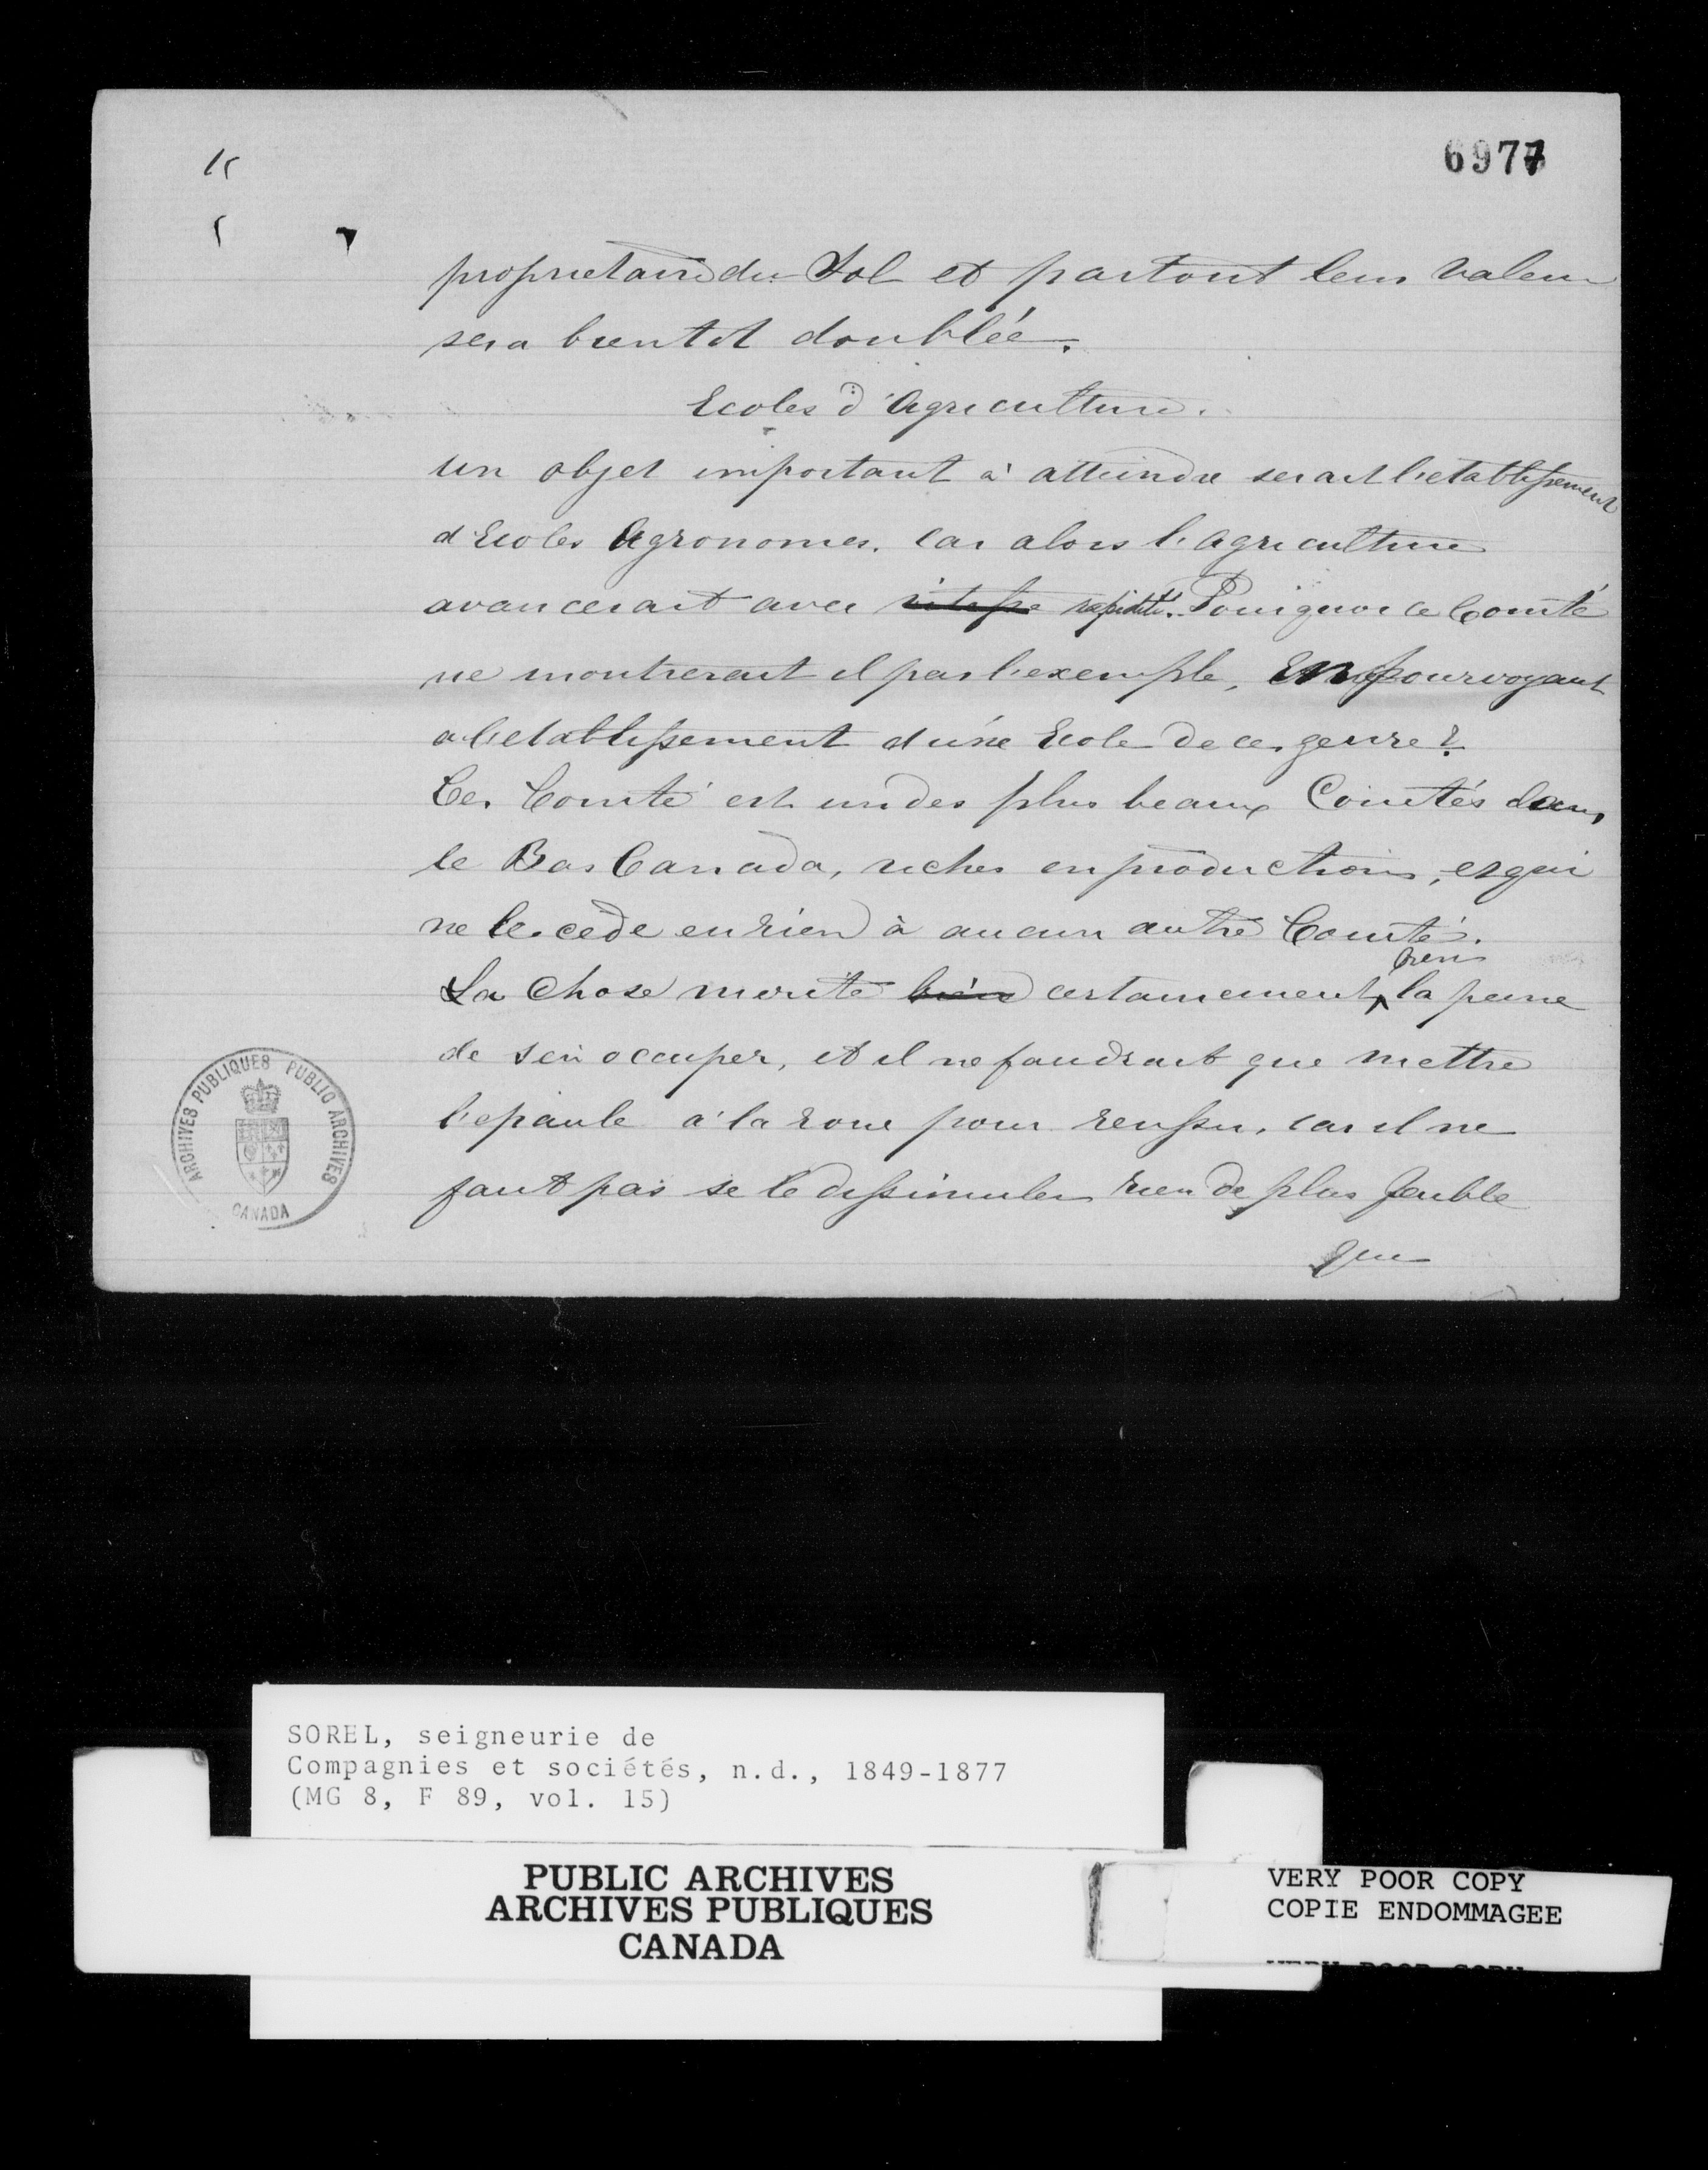 6977
proprietaire du Sol et partout leur valeur
sera bientot doublée.
Ecoles d'Agriculture.
Un objet important à atteindre serait l'etablissement
d'Ecoles Agronomes. Car alors l'agriculture
avancerait avec vitesse rapidité. Pourquoi ce Comté
ne montrerait il pas l'exemple, en pourvoyant
a l'etablissement d'une Ecole de ce genre?
Ce Comté est un des plus beaux Comtés dans
le Bas Canada, riches en productions, et qui
ne le cède en rien à aucun autre Comté.
bien
La chose merite bien certainement la peine
de s'en occuper, et il ne faudrait que mettre
l'epaule à la roue pour reussir, car il ne
faut pas se le dissimuler rien de plus faible
que
ARCHIVES PUBLIQUES PUBLIC ARCHIVES
CANADA
SOREL, seigneurie de
Compagnies et sociétés, n.d., 1849-1877
(MG 8, F 89, vol. 15)
PUBLIC ARCHIVES
ARCHIVES PUBLIQUES
CANADA
VERY POOR COPY
COPIE ENDOMMAGEE
VERY POOR COPY